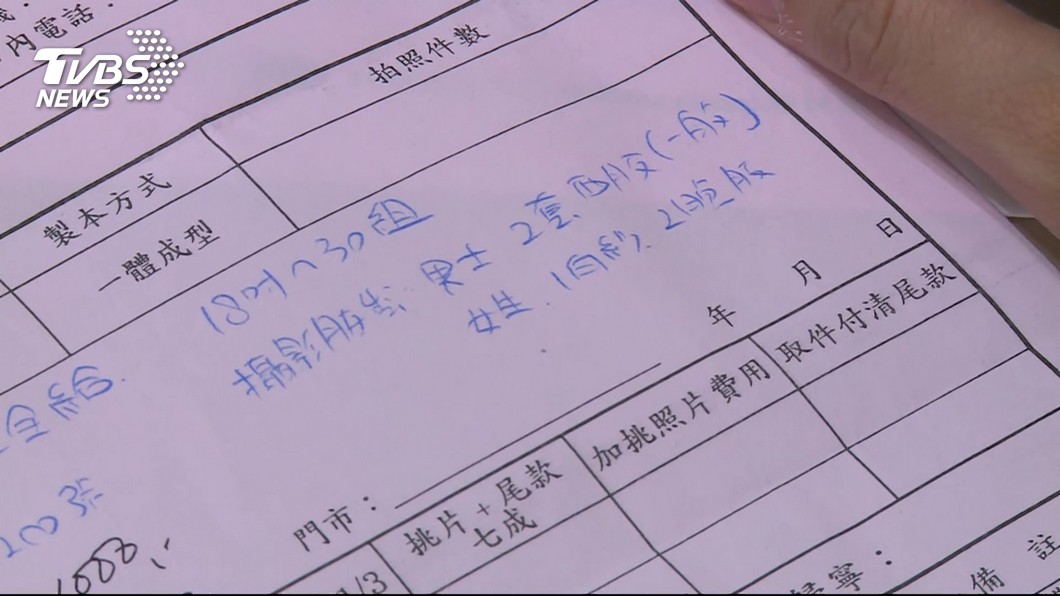 TVBS
NEWS
內電話：
拍照件數
製本方式
一體成型
18吋 30組
攝影服裝 男士 2套西服(一般)
女生 1白紗 2晚服
全給
200張
年 月 日
取件付清尾款
加挑照片費用
門市：
挑片+尾款
七成
1/3
歸寧：
備註